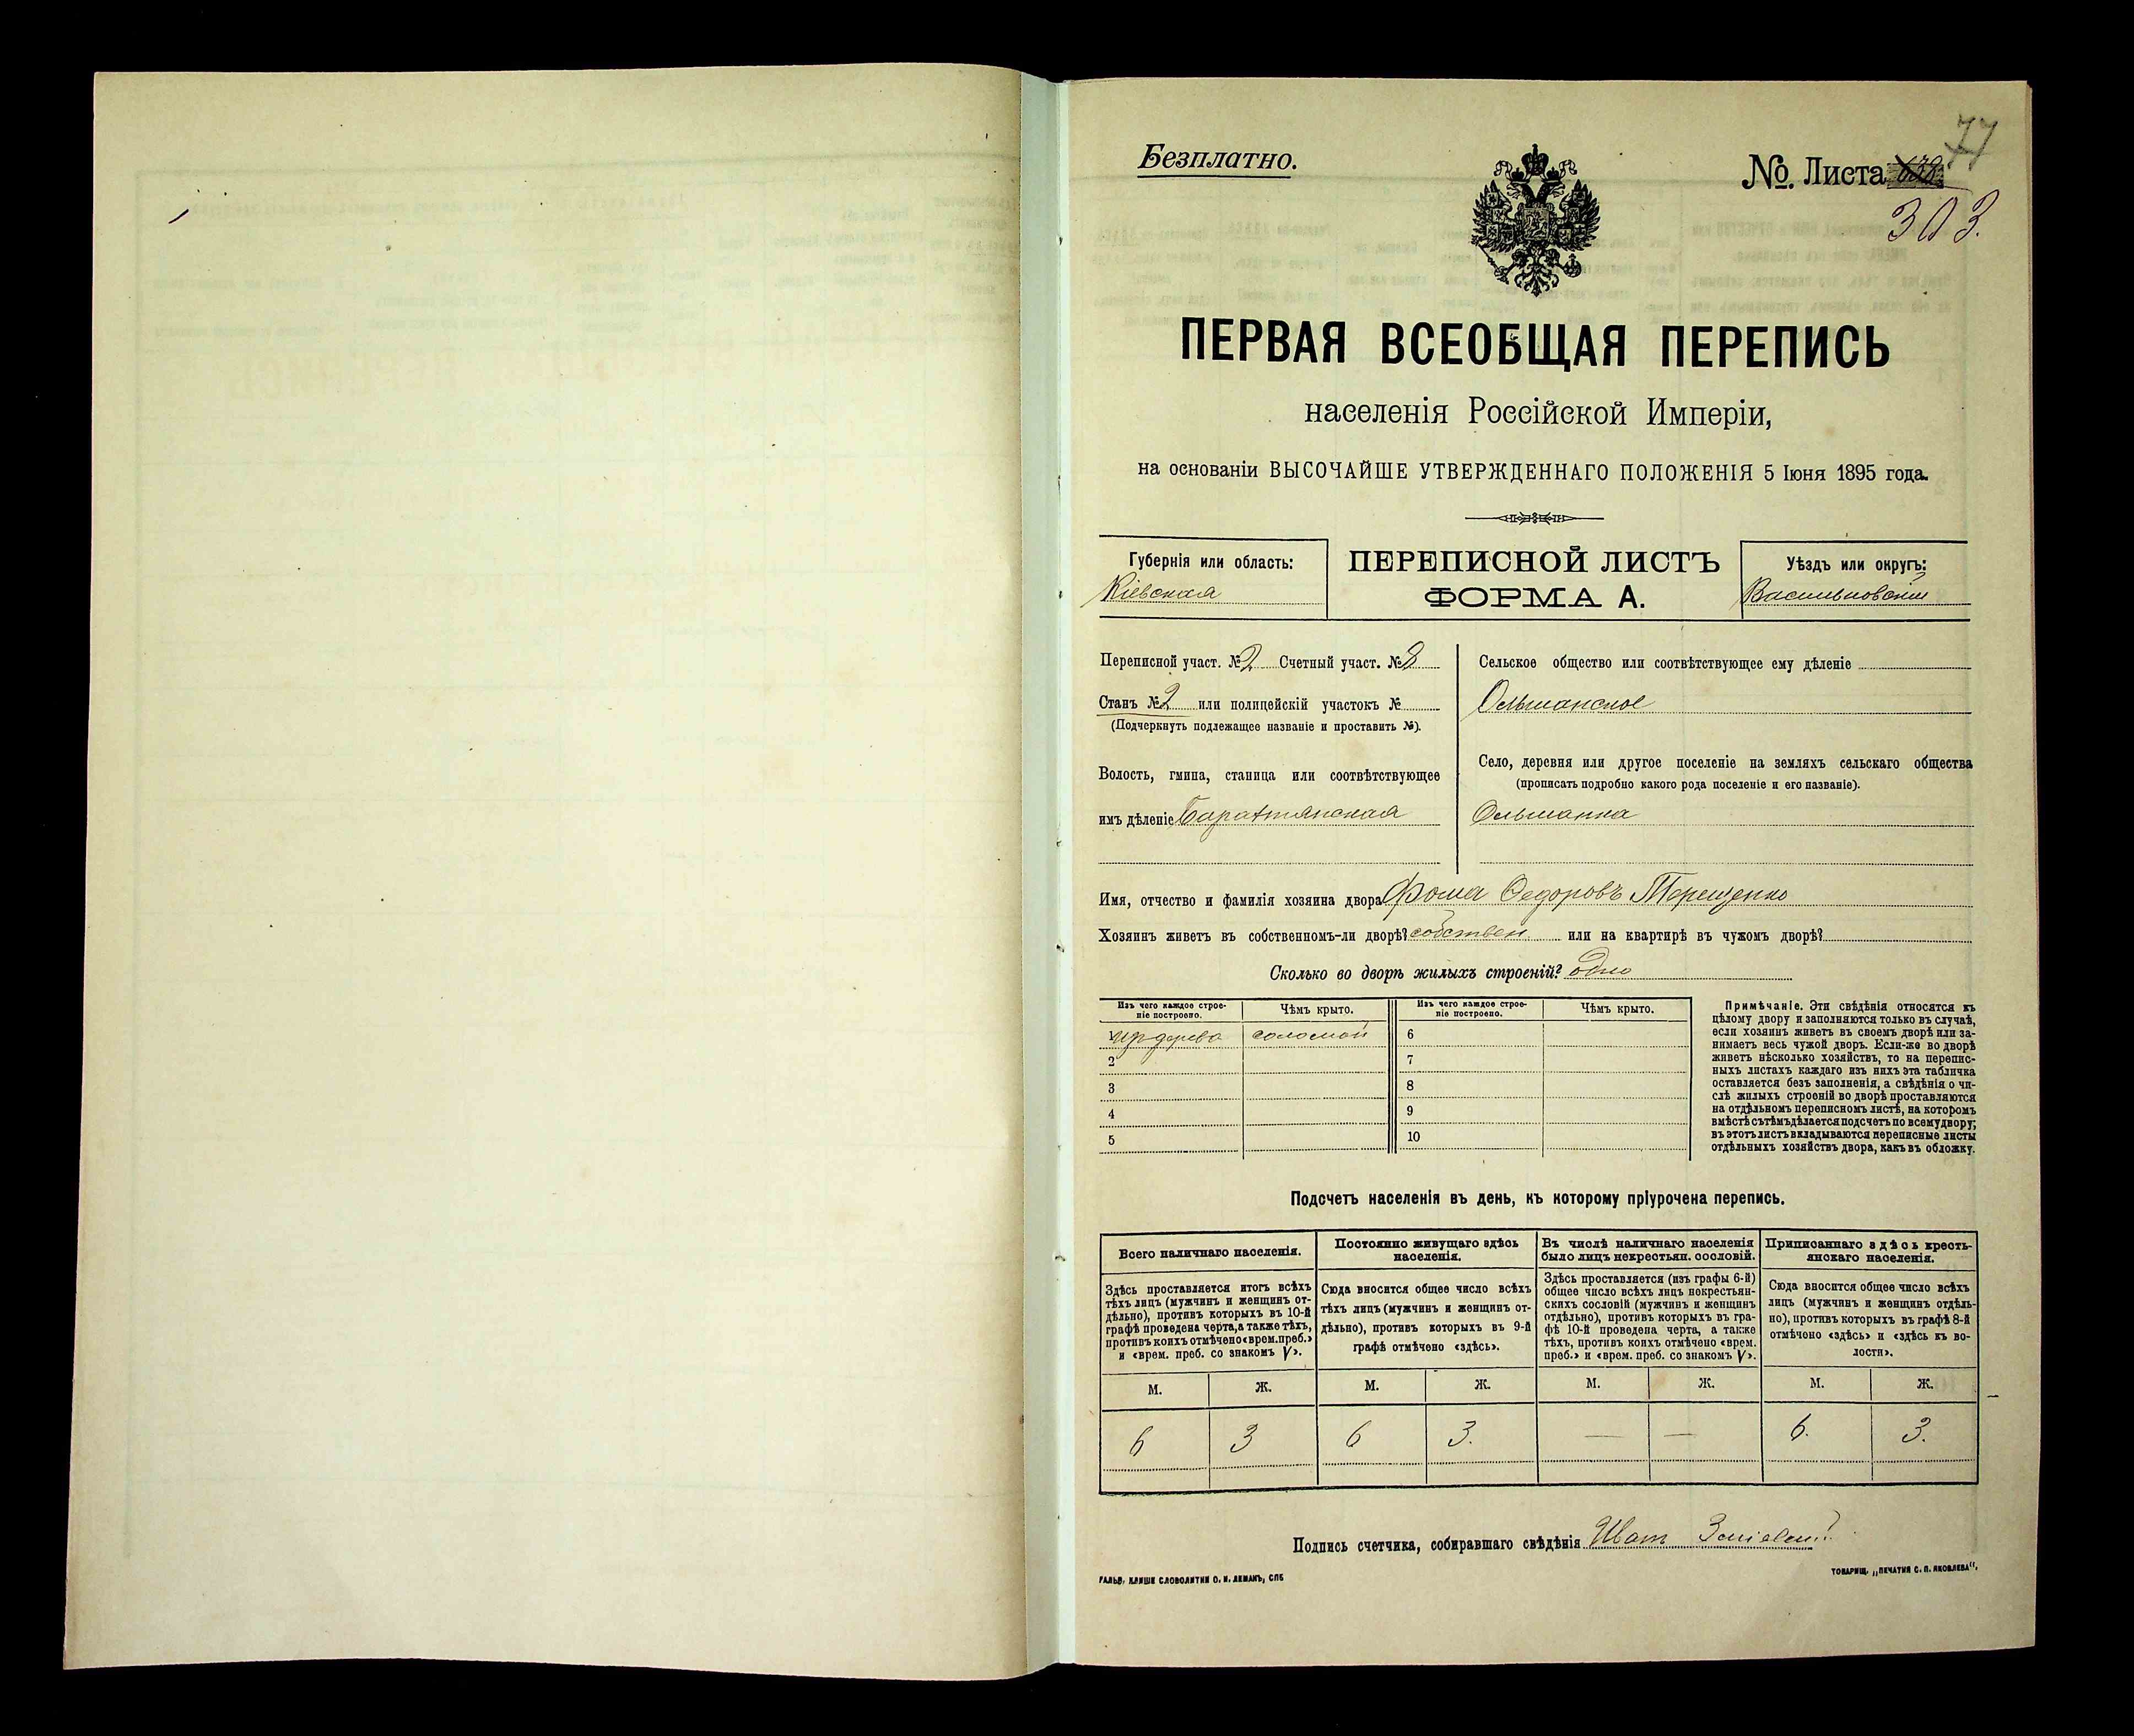 77
Безплатно.
№. Листа
303.
ПЕРВАЯ ВСЕОБЩАЯ ПЕРЕПИСЬ
населенія Россійской Имперіи,
на основаніи ВЫСОЧАЙШЕ УТВЕРЖДЕННАГО ПОЛОЖЕНІЯ 5 Іюня 1895 года.
Губернія или область:
Кіевская
ПЕРЕПИСНОЙ ЛИСТЪ
ФОРМА А.
Уѣздъ или округъ:
Васильковскій
Переписной участ. № 2 Счетный участ. № 8
Станъ № 2 или полицейскій участокъ №
(Подчеркнуть подлежащее названіе и проставить №).
Волость, гмина, станица или соотвѣтствующее
имъ дѣленіе Барахтянская
Сельское общество или соотвѣтствующее ему дѣленіе
Ольшанское
Село, деревня или другое поселеніе на земляхъ сельскаго общества
(прописать подробно какого рода поселеніе и его названіе).
Ольшанка
Имя, отчество и фамилія хозяина двора Фома Федоровъ Терещенко
Хозяинъ живетъ въ собственномъ-ли дворѣ? собствен. или на квартирѣ въ чужомъ дворѣ?
Сколько во дворѣ жилыхъ строеній? одно
Изъ чего каждое строе-
ніе построено.
Чѣмъ крыто.
Изъ чего каждое строе-
ніе построено.
Чѣмъ крыто.
дерева соломой 6
2 7
3 8
4 9
5 10
Примѣчаніе. Эти свѣдѣнія относятся къ
цѣлому двору и заполняются только въ случаѣ,
если хозяинъ живетъ въ своемъ дворѣ или за-
нимаетъ весь чужой дворъ. Если-же во дворѣ
живетъ нѣсколько хозяйствъ, то на перепис-
ныхъ листахъ каждаго изъ нихъ эта табличка
оставляется безъ заполненія, а свѣдѣнія о чи-
слѣ жилыхъ строеній во дворѣ проставляются
на отдѣльномъ переписномъ листѣ, на которомъ
вмѣстѣ съ тѣмъ дѣлается подсчетъ по всему двору;
въ этотъ листъ вкладываются переписные листы
отдѣльныхъ хозяйствъ двора, какъ въ обложку.
Подсчетъ населенія въ день, къ которому пріурочена перепись.
Всего наличнаго населенія.
Здѣсь проставляется итогъ всѣхъ
тѣхъ лицъ (мужчинъ и женщинъ от-
дѣльно), противъ которыхъ въ 10-й
графѣ проведена черта, а также тѣхъ,
противъ коихъ отмѣчено «врем. преб.»
и «врем. преб. со знакомъ V».
Постоянно живущаго здѣсь
населенія.
Сюда вносится общее число всѣхъ
тѣхъ лицъ (мужчинъ и женщинъ от-
дѣльно), противъ которыхъ въ 9-й
графѣ отмѣчено «здѣсь».
Въ числѣ наличнаго населенія
было лицъ некрестьян. сословій.
Здѣсь проставляется (изъ графы 6-й)
общее число всѣхъ лицъ некрестьян-
скихъ сословій (мужчинъ и женщинъ
отдѣльно), противъ которыхъ въ гра-
фѣ 10-й проведена черта, а также
тѣхъ, противъ коихъ отмѣчено «врем.
преб.» и «врем. преб. со знакомъ V».
Приписаннаго здѣсь кресть-
янскаго населенія.
Сюда вносится общее число всѣхъ
лицъ (мужчинъ и женщинъ отдѣль-
но), противъ которыхъ въ графѣ 8-й
отмѣчено «здѣсь» и «здѣсь къ во-
лости».
М. Ж. М. Ж. М. Ж. М. Ж.
6 3 6 3. — — 6. 3.
Подпись счетчика, собиравшаго свѣдѣнія Иванъ
ГАЛЬВ. КЛИШЕ СЛОВОЛИТНИ О. И. ЛЕМАНЪ, СПБ
ТОВАРИЩ. „ПЕЧАТНЯ С. П. ЯКОВЛЕВА".